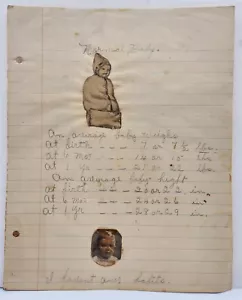 Normal Baby.
An average baby weighs
At birth — — — 7 or 7½ lbs.
At 6 mo. — — — 14 or 15 lbs
At 1 yr. — — — 21 lbs
An average baby height
At birth — — — 20 or 22 in.
At 6 mo. — — — 24 or 26 in.
At 1 yr — — — 28 or 29 in.
habits.